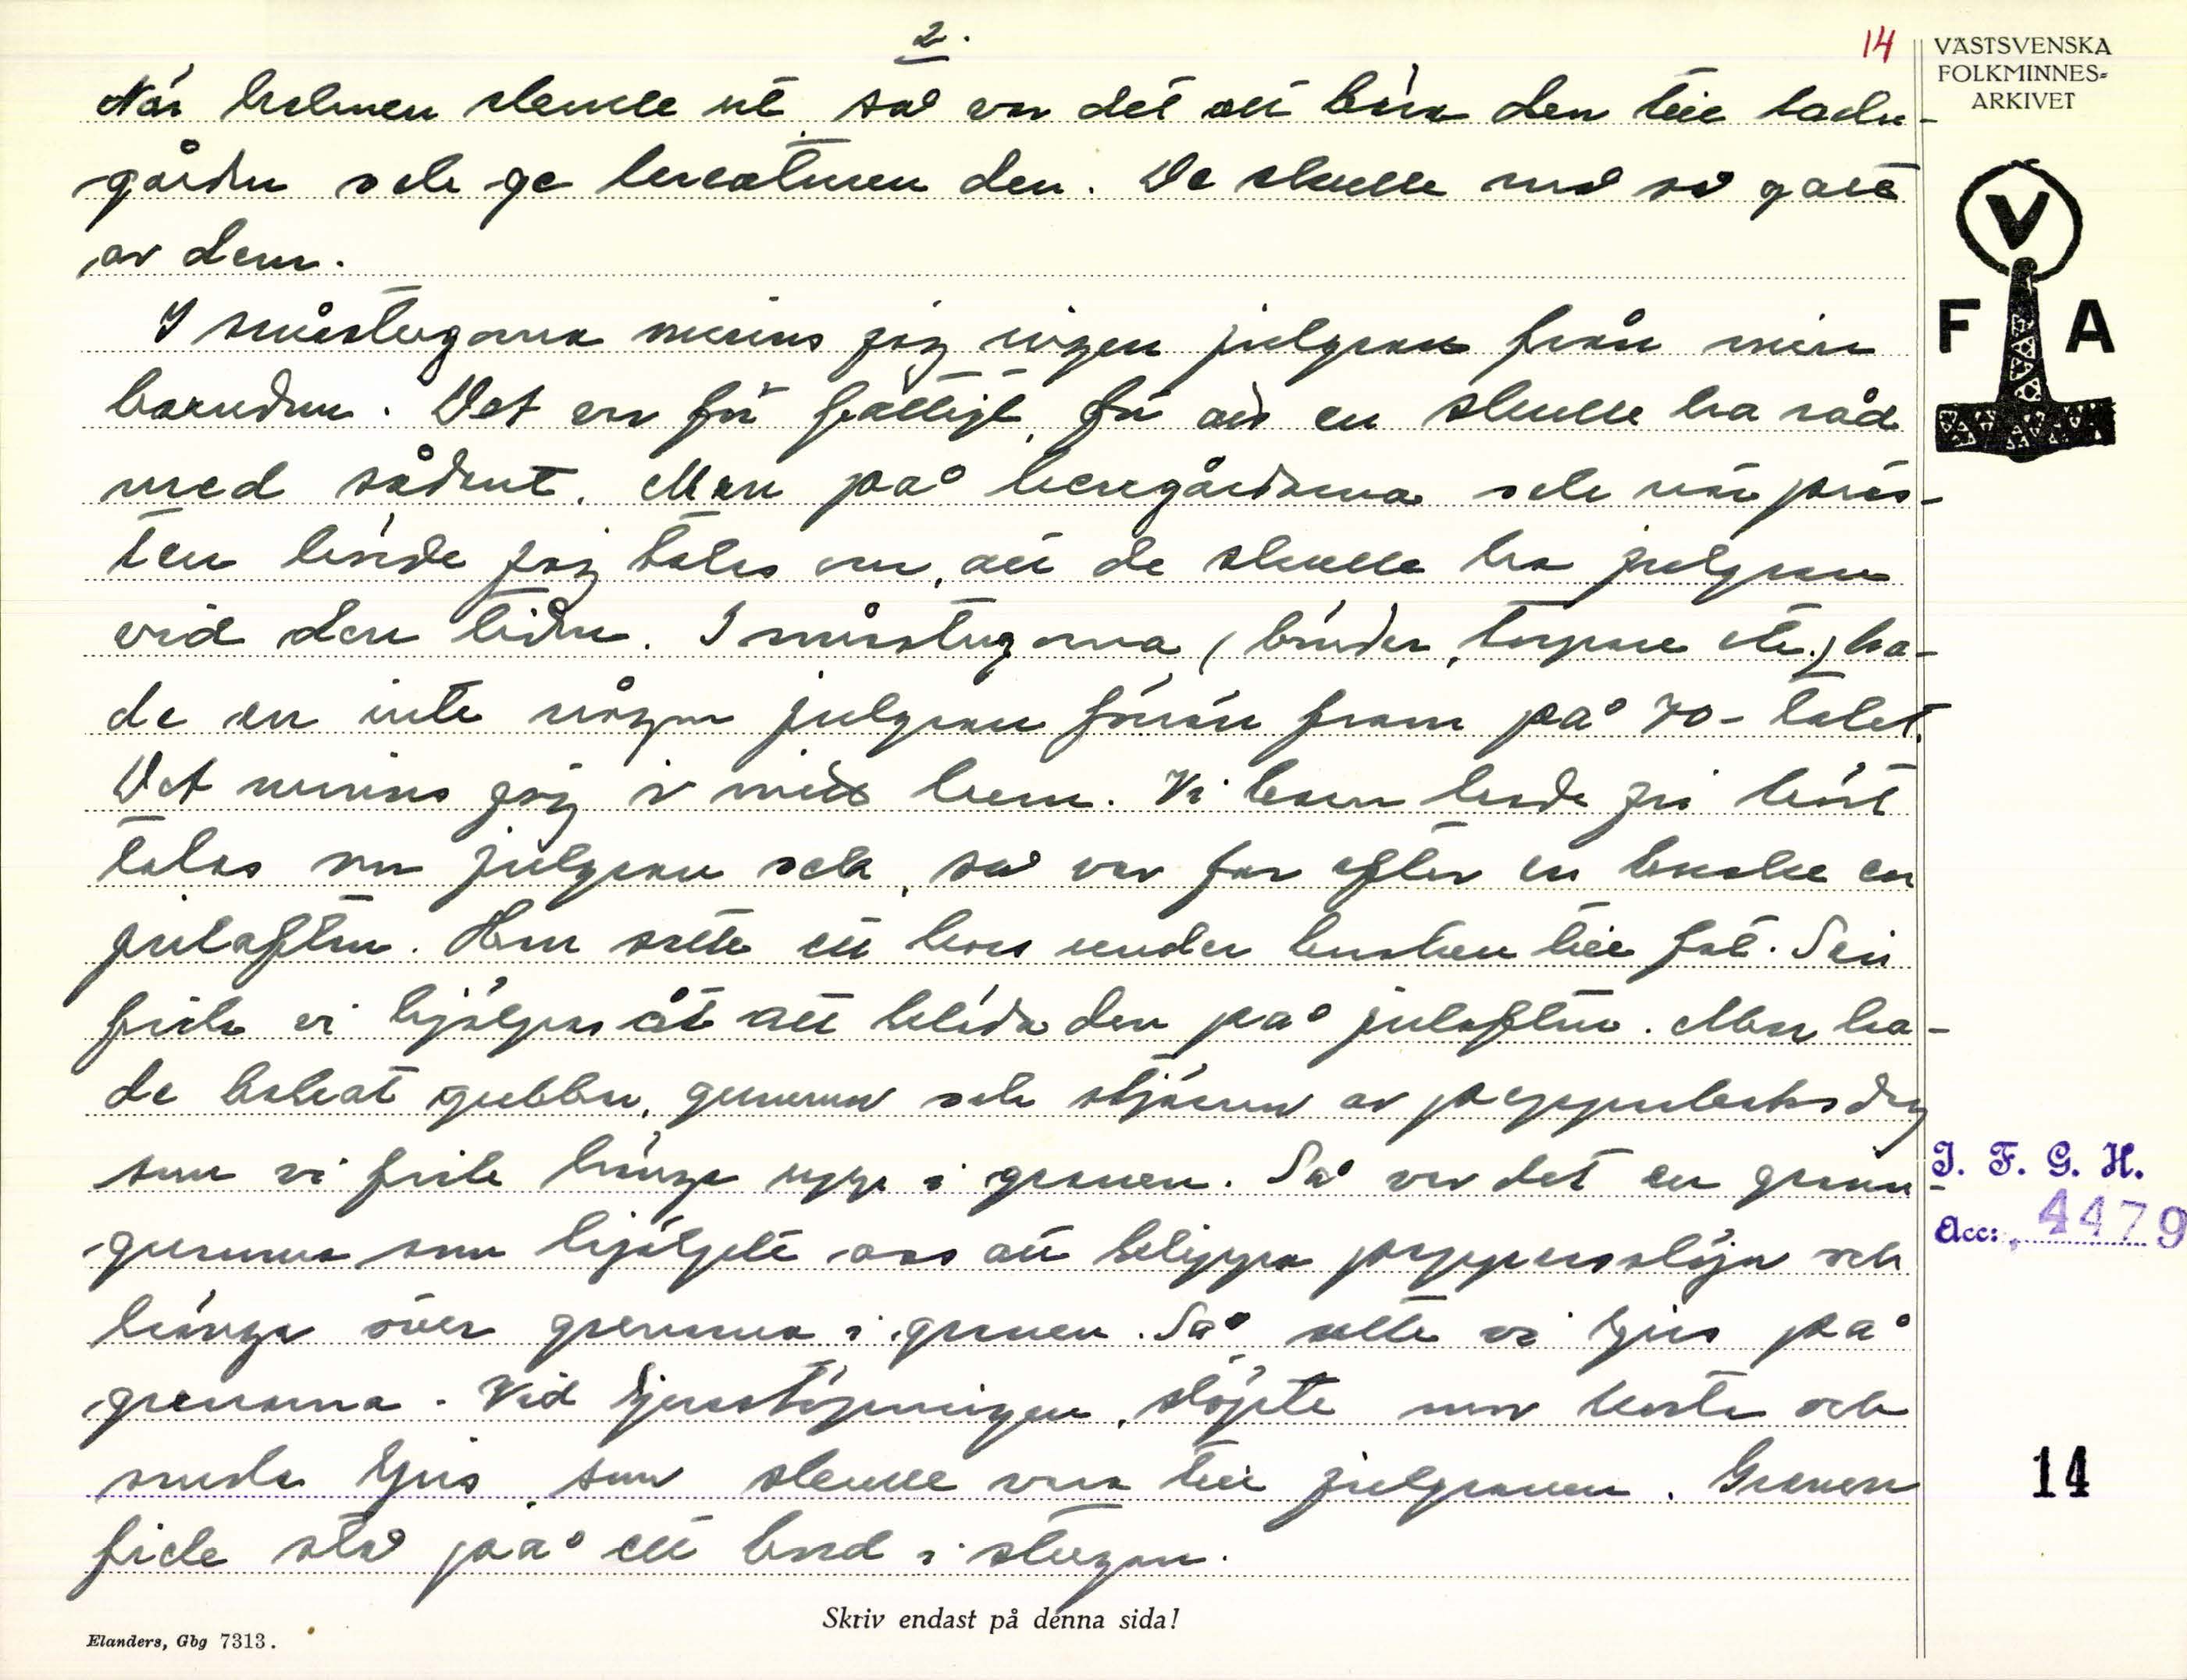 2.
14
VÄSTSVENSKA
FOLKMINNES-
ARKIVET
När halmen skulle ut, så var det att bära den till ladu-
gården och ge kreaturen den. De skulle må så gott
av dem.
V
F A
I småstugorna minns jag ingen julgran från min
barndom. Det var för fattigt, för att en skulle ha råd
med sådant. Men på herrgårdarna och när präs-
ten hörde jag talas om, att de skulle ha julgran
vid den tiden. I småstugorna (bönder, torpare etc.) ha-
de en inte någon julgran förrän fram på 70-talet.
Det minns jag i mitt hem. Vi barn hade ju hört
talas om julgran och, så var far efter en buske en
julafton. Han satte ett kors under busken till fot. Sen
fick vi hjälpas åt att kläda den på julafton. Mor ha-
de bakat gubbar, gummor och stjärnor av pepparkaksdeg
som vi fick hänga upp i granen. Så var det en grann-
gumma som hjälpte oss att klippa pappersslöjor och
hänga över grenarna i granen. Så satte vi ljus på
grenarna. Vid ljusstöpningen, stöpte mor korta och
smala ljus, som skulle vara till julgranen. Granen
fick stå på ett bord i stugan.
I. F. G. H.
Acc: 4479
14
Skriv endast på denna sida!
Elanders, Gbg 7313.